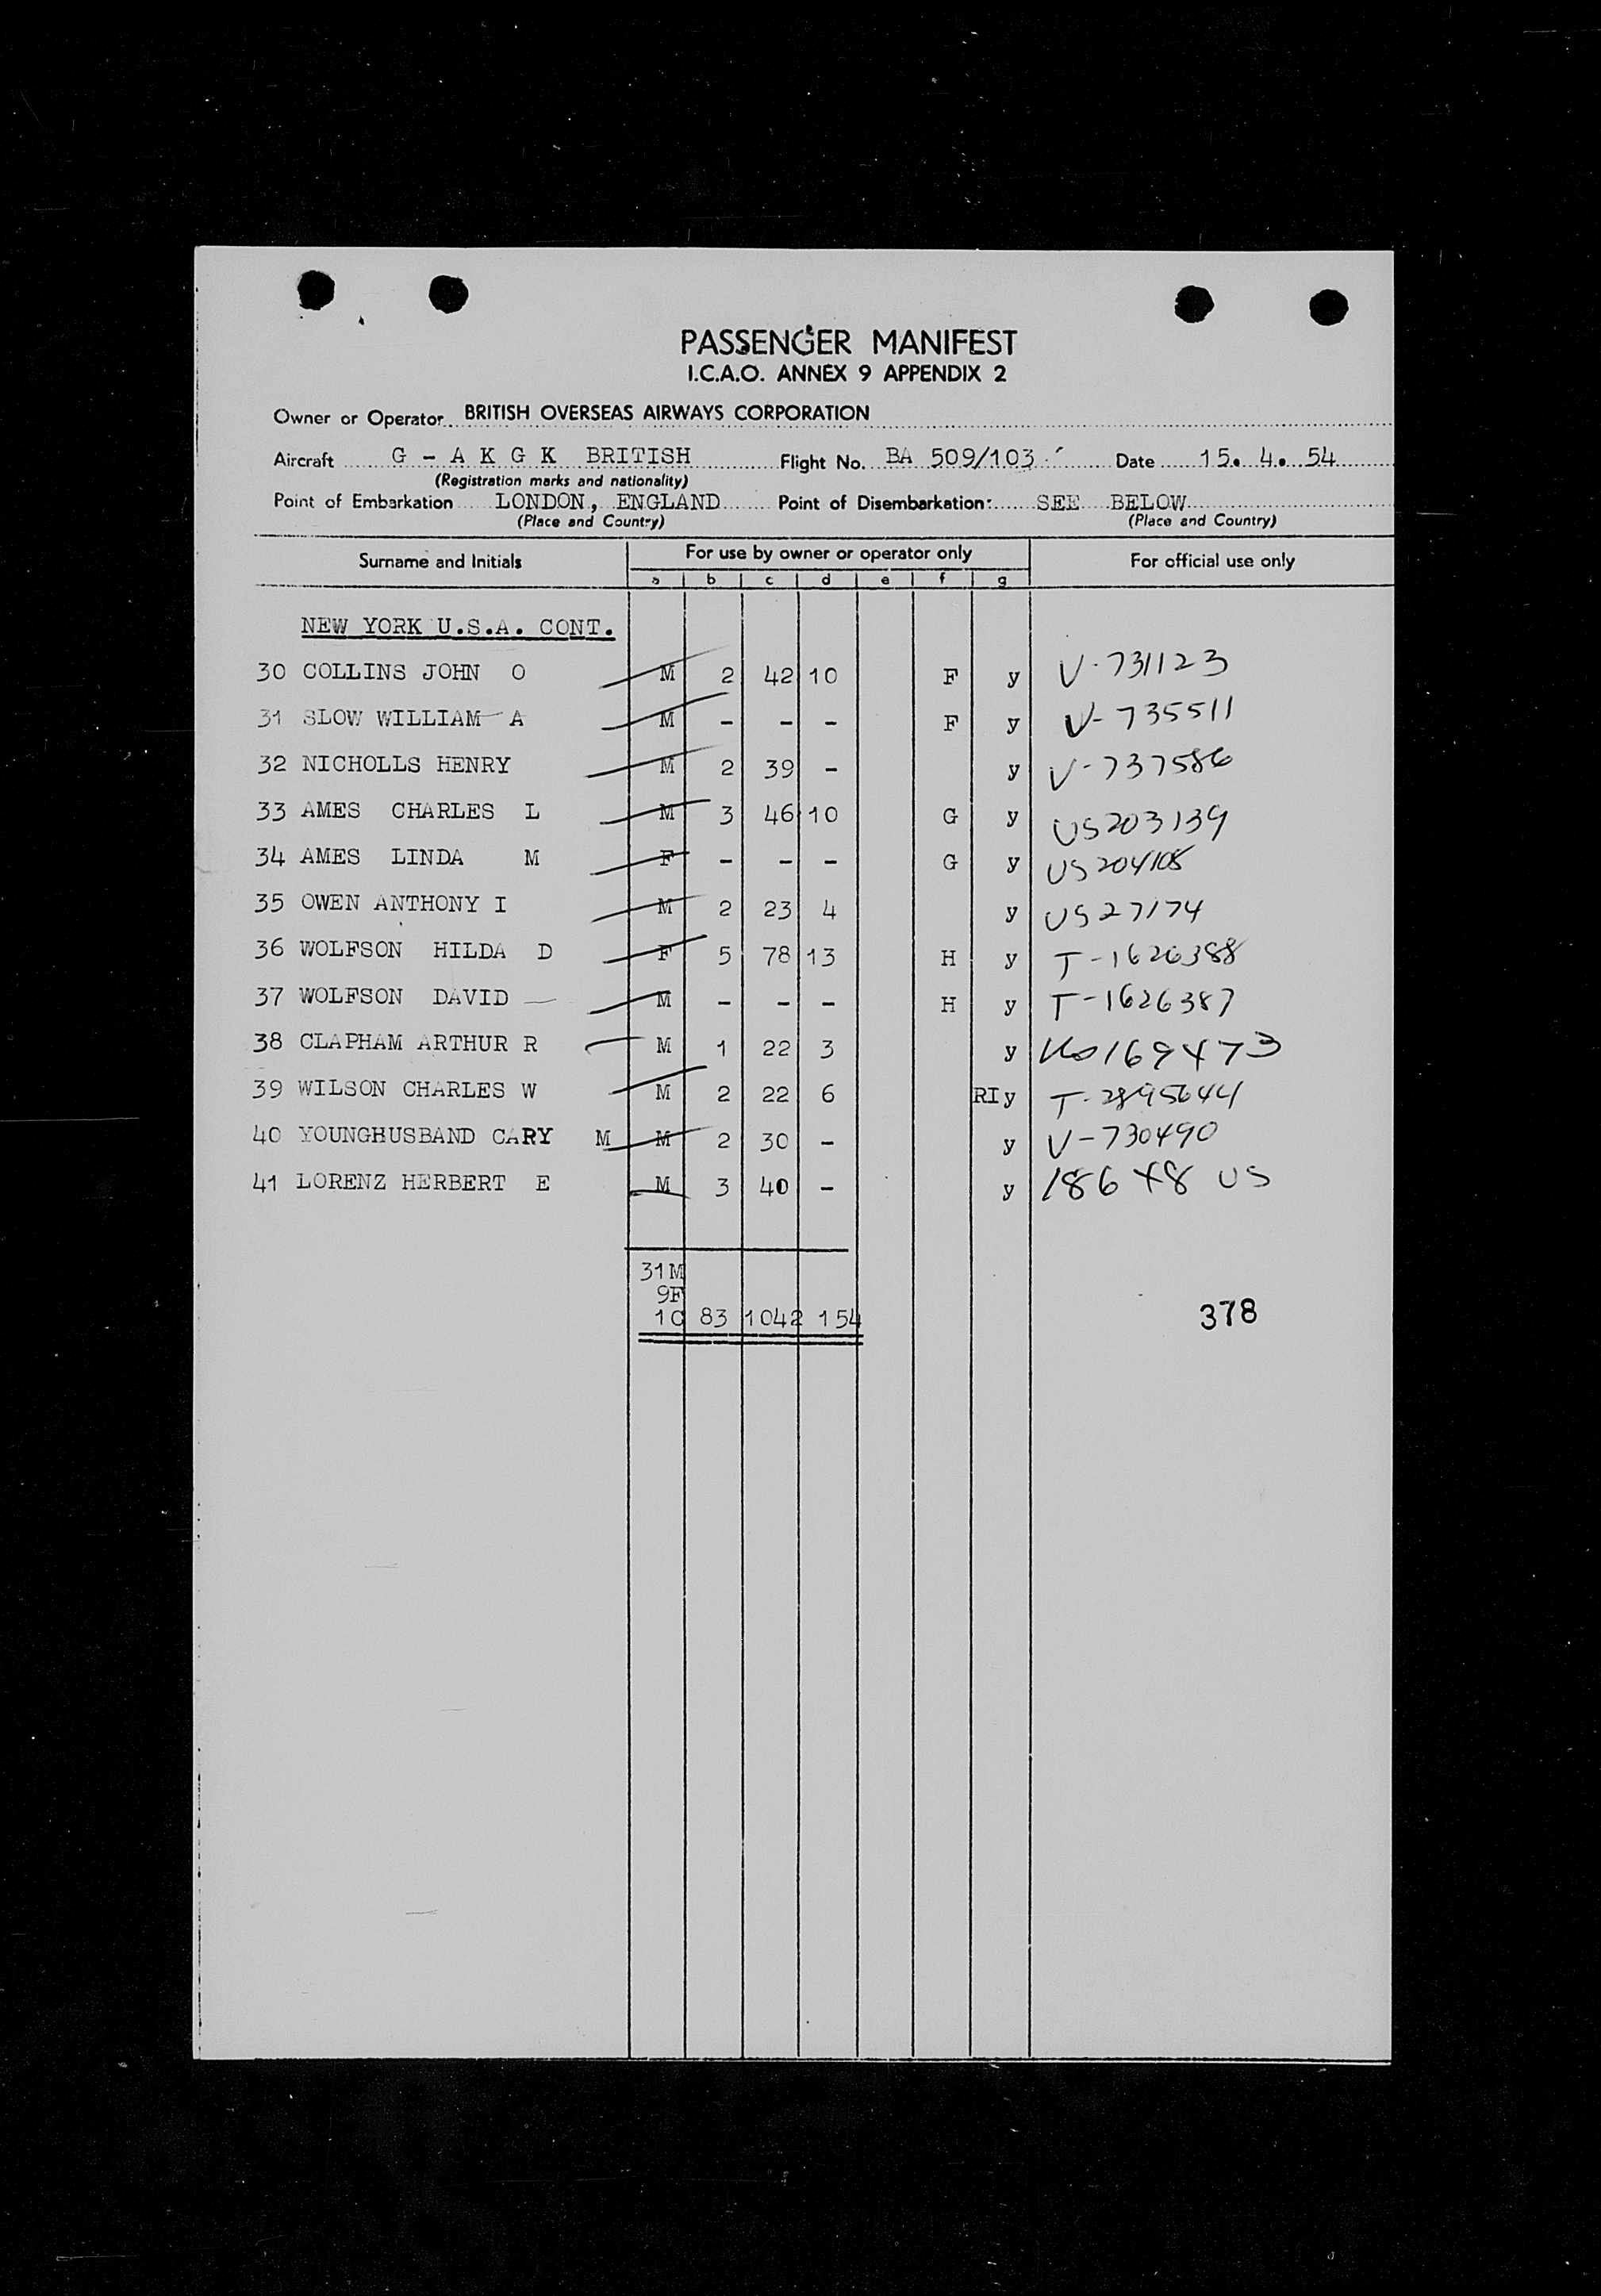 PASSENGER MANIFEST
I.C.A.O. ANNEX 9 APPENDIX 2
Owner or Operator BRITISH OVERSEAS AIRWAYS CORPORATION
Aircraft G - A K G K BRITISH Flight No. BA 509/103 Date 15. 4. 54
(Registration marks and nationality)
Point of Embarkation LONDON, ENGLAND Point of Disembarkation: SEE BELOW
(Place and Country) (Place and Country)
Surname and Initials For use by owner or operator only For official use only
a b c d e f g
NEW YORK U.S.A. CONT.
30 COLLINS JOHN O M 2 42 10 F y V-731123
31 SLOW WILLIAM A M - - - F y V-735511
32 NICHOLLS HENRY M 2 39 - y V-737586
33 AMES CHARLES L M 3 46 10 G y US203139
34 AMES LINDA M F - - - G y US204108
35 OWEN ANTHONY I M 2 23 4 y US27174
36 WOLFSON HILDA D F 5 78 13 H y T-1626388
37 WOLFSON DAVID M - - - H y T-1626387
38 CLAPHAM ARTHUR R M 1 22 3 y 169473
39 WILSON CHARLES W M 2 22 6 RI y T-2895644
40 YOUNGHUSBAND CARY M M 2 30 - y V-730490
41 LORENZ HERBERT E M 3 40 - y 18648 US
31M
9F
1C 83 1042 154
378